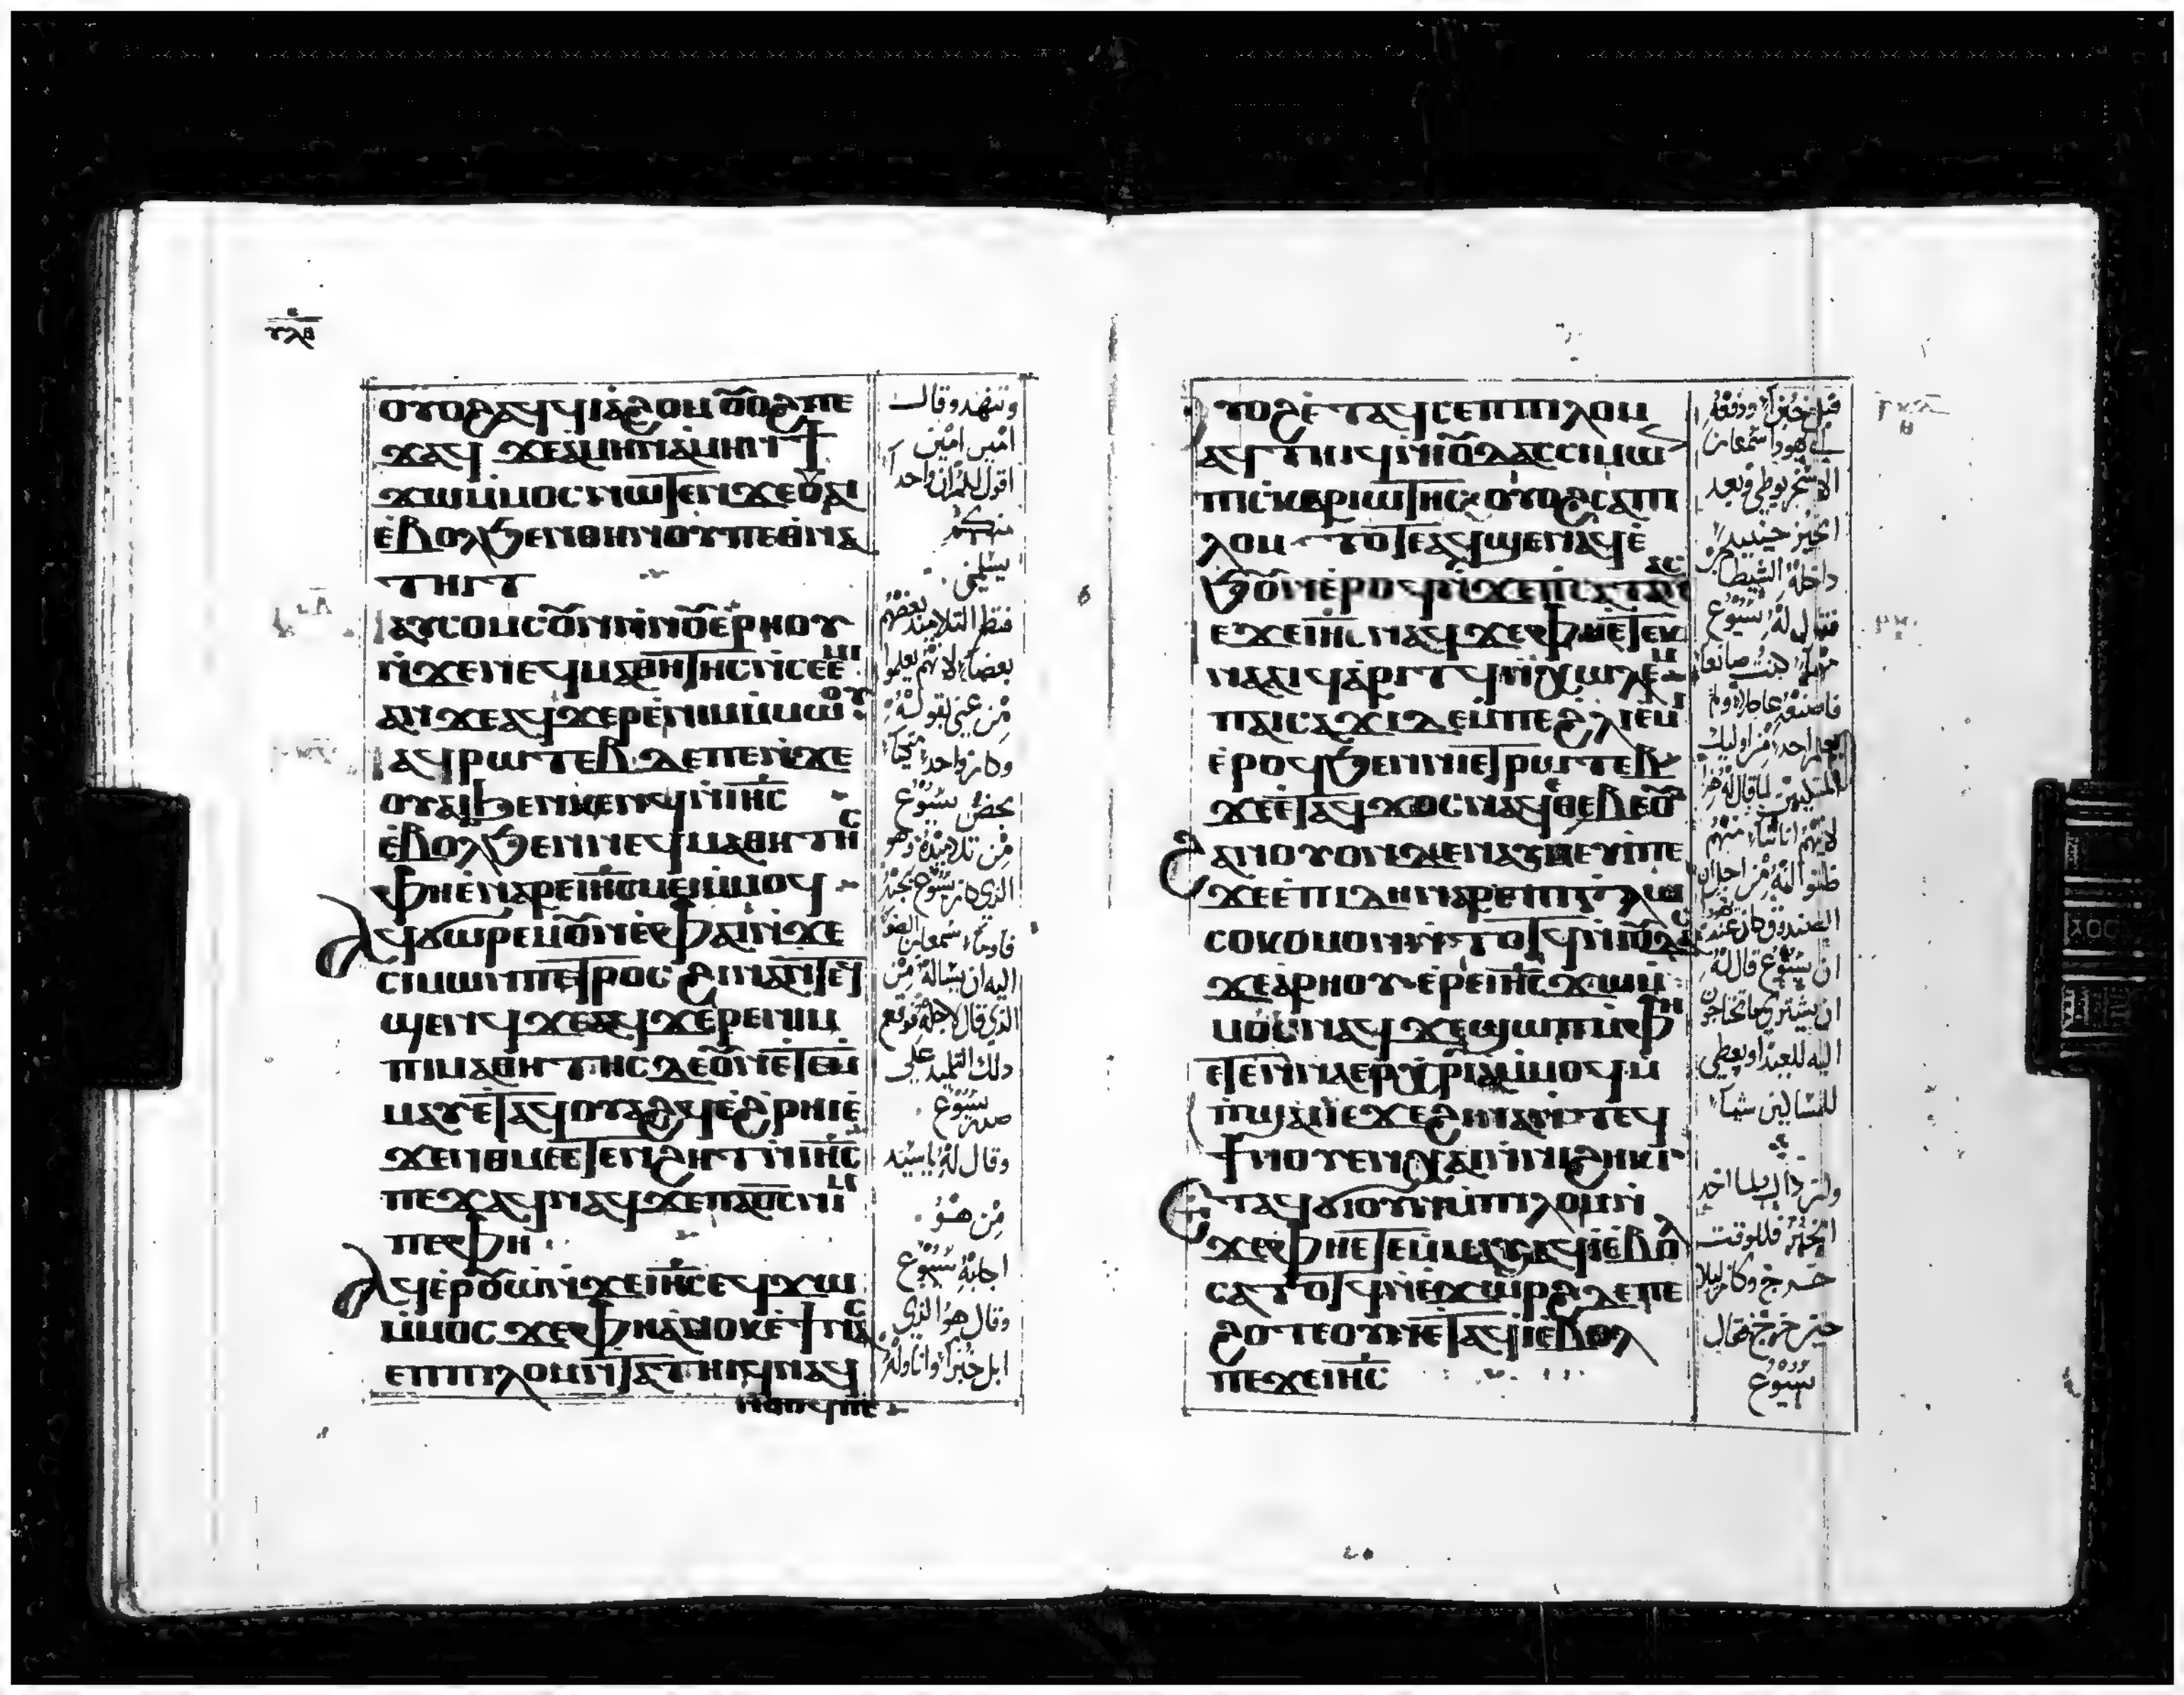 ⲟⲩⲟϩ ⲁϥϥⲓⲁϩⲟⲙ ⲟⲩⲟϩ ⲡⲉ
ϫⲁϥ ϫⲉ ⲁⲙⲏⲛ ⲁⲙⲏⲛ ϯ
ϫⲱ ⲙ̇ⲙⲟⲥ ⲛⲱⲧⲉⲛ ϫⲉ ⲟⲩⲁⲓ
ⲉ̇ⲃⲟⲗ ϧⲉⲛ ⲑⲏⲛⲟⲩ ⲡⲉⲑⲛⲁ
ⲧⲏⲓⲧ
ⲁⲩⲥⲟⲙⲥ ⲟⲩⲛ ⲛ̇ⲛⲟⲩⲉⲣⲏⲟⲩ
ⲛ̇ϫⲉ ⲛⲉϥⲙⲁⲑⲏⲧⲏⲥ ⲛ̇ⲥⲉⲉ̇ⲙⲓ
ⲁⲛ ϫⲉ ⲁϥϫⲉⲣⲉ ⲛⲓⲙ ⲙ̇ⲙⲱⲟⲩ
ⲁϥⲣⲱⲧⲉⲃ ⲇⲉ ⲡⲉ ⲛ̇ϫⲉ
ⲟⲩⲁⲓ ϧⲉⲛ ⲕⲉⲛϥ ⲛ̇ⲓⲏ̅ⲥ
ⲉ̇ⲃⲟⲗ ϧⲉⲛ ⲛⲉϥⲙⲁⲑⲏⲧⲏⲥ
ⲫⲏ ⲉ̇ⲛⲁⲣⲉ ⲓⲏ̅ⲥ ⲙⲉⲓ ⲙ̇ⲙⲟϥ
ⲁϥϭⲱⲣⲉⲙ ⲟⲩⲛ ⲉ̇ⲫⲁⲓ ⲛ̇ϫⲉ
ⲥⲓⲙⲱⲛ ⲡⲉⲧⲣⲟⲥ ϩⲓⲛⲁ ⲛ̇ⲧⲉϥ
ϣⲉⲛϥ ϫⲉ ⲁϥϫⲉⲣⲉ ⲛⲓⲙ
ⲡⲓⲙⲁⲑⲏⲧⲏⲥ ⲇⲉ ⲟⲩⲛ ⲉ̇ⲧⲉⲙ
ⲙⲁⲩ ⲉ̇ⲧⲁϥⲟⲩⲁϩϥ ⲉ̇ϩⲣⲏⲓ ⲉ̇
ϫⲉⲛ ⲑⲙⲉⲥⲧⲉⲛϩⲏⲧ ⲛ̇ⲓⲏ̅ⲥ
ⲡⲉϫⲁϥ ⲛⲁϥ ϫⲉ ⲡⲁⲟ̅ⲥ ⲛⲓⲙ
ⲡⲉ ⲫⲏ
ⲁϥⲉ̇ⲣⲟⲩⲱ ⲛ̇ϫⲉ ⲓⲏ̅ⲥ ⲉϥϫⲱ
ⲙ̇ⲙⲟⲥ ϫⲉ ⲫⲏ ⲁ̇ⲛⲟⲕ ⲉ̇ϯⲛⲁ
ⲥⲉⲡ ⲡⲓⲗⲱⲙ ⲛ̇ⲧⲁⲧⲏⲓϥ ⲛⲁϥ
وتنهد وقال
امين امين
اقول لكم ان واحدا
منكم
يسلمني
فنظر التلاميذ بعضهم
بعضا لانهم لم يعلموا
من عني بقوله
وكان واحد متكيا
بحضن يسوع
من تلاميذه وهو
الذي كان يسوع يحبه
فاومأ سمعان الصفا
اليه ان يسأله من
الذي قال لاجله
ذلك التلميذ على
صدر يسوع
وقال له يا سيد
من هو
اجابه يسوع
وقال هو الذي
ابل خبزا واناوله
ⲟⲩⲟϩ ⲉ̇ⲧⲁϥⲥⲉⲡ ⲡⲓⲗⲱⲙ
ⲁϥⲧⲏⲓϥ ⲛ̇ⲓⲟⲩⲇⲁⲥ ⲥⲓⲙⲱⲛ
ⲡⲓⲥⲕⲁⲣⲓⲱⲧⲏⲥ ⲟⲩⲟϩ ⲥⲁ ⲡⲓ
ⲗⲱⲙ ⲧⲟⲧⲉ ⲁϥϣⲉⲛⲁϥ ⲉ̇
ϧⲟⲩⲛ ⲉ̇ⲣⲟϥ ⲛ̇ϫⲉ ⲡⲥⲁⲧⲁⲛⲁⲥ
ⲡⲉϫⲉ ⲓⲏ̅ⲥ ⲛⲁϥ ϫⲉ ⲫⲏ ⲉ̇ⲧⲉⲕ
ⲛⲁⲁⲓϥ ⲁⲣⲓⲧϥ ⲛ̇ⲭⲱⲗⲉⲙ
ⲡⲁⲓⲥⲁϫⲓ ⲇⲉ ⲙ̇ⲡⲉ ϩⲗⲓ ⲉ̇ⲙⲓ
ⲉ̇ⲣⲟϥ ϧⲉⲛ ⲛⲏ ⲉⲧⲣⲱⲧⲉⲃ
ϫⲉ ⲉ̇ⲧⲁϥϫⲟⲥ ⲛⲁϥ ⲉⲑⲃⲉ ⲟⲩ
ϩⲁⲛⲟⲩⲟⲛ ⲇⲉ ⲛⲁⲩⲙⲉⲩⲓ ⲡⲉ
ϫⲉ ⲉ̇ⲡⲓⲇⲏ ⲛⲁⲣⲉ ⲡⲓⲅⲗⲱⲥ
ⲥⲟⲕⲟⲙⲟⲛ ⲛ̇ⲧⲟⲧϥ ⲛ̇ⲓⲟⲩⲇⲁⲥ
ϫⲉ ⲁⲣⲏⲟⲩ ⲉ̇ⲣⲉ ⲓⲏ̅ⲥ ϫⲱ ⲙ̇
ⲙⲟⲥ ⲛⲁϥ ϫⲉ ϣⲱⲡ ⲙ̇ⲫⲏ
ⲉⲧⲉⲛⲛⲁⲉⲣⲭⲣⲓⲁ ⲙ̇ⲙⲟϥ ⲙ̇
ⲡϣⲁⲓ ⲓⲉ ϫⲉ ϩⲓⲛⲁ ⲛ̇ⲧⲉϥ
ϯ ⲛ̇ⲟⲩⲉⲛⲭⲁⲓ ⲛ̇ⲛⲓϩⲏⲕⲓ
ⲉⲧⲁϥϭⲓ ⲟⲩⲛ ⲙ̇ⲡⲓⲗⲱⲙ ⲛ̇
ϫⲉ ⲫⲏ ⲉ̇ⲧⲉⲙⲙⲁⲩ ⲁϥⲓ̇ ⲉ̇ⲃⲟⲗ
ⲥⲁⲧⲟⲧϥ ⲛⲉ ⲉ̇ϫⲱⲣϩ ⲇⲉ ⲡⲉ
ϩⲟⲧⲉ ⲟⲩⲛ ⲉ̇ⲧⲁϥⲓ̇ ⲉ̇ⲃⲟⲗ
ⲡⲉϫⲉ ⲓⲏ̅ⲥ
فبل خبزا ودفعه
الى يهودا سمعان
الاسخريوطي وبعد
الخبز حينيذ
داخله الشيطان
فقال له يسوع
مهما كنت صانعا
فاصنعه عاجلا ولم
يعلم احد من اوليك
المتكيين لما قال له هذا
لانهم اناسا منهم
ظنوا انه من اجل ان
الصندوق كان عند يهودا
ان يسوع قال له
ان يشتري ما يحتاجون
اليه للعيد او يعطي
للمساكين شيا
الخبز فللوقت
خرج وكان ليلا
حين خرج قال
يسوع